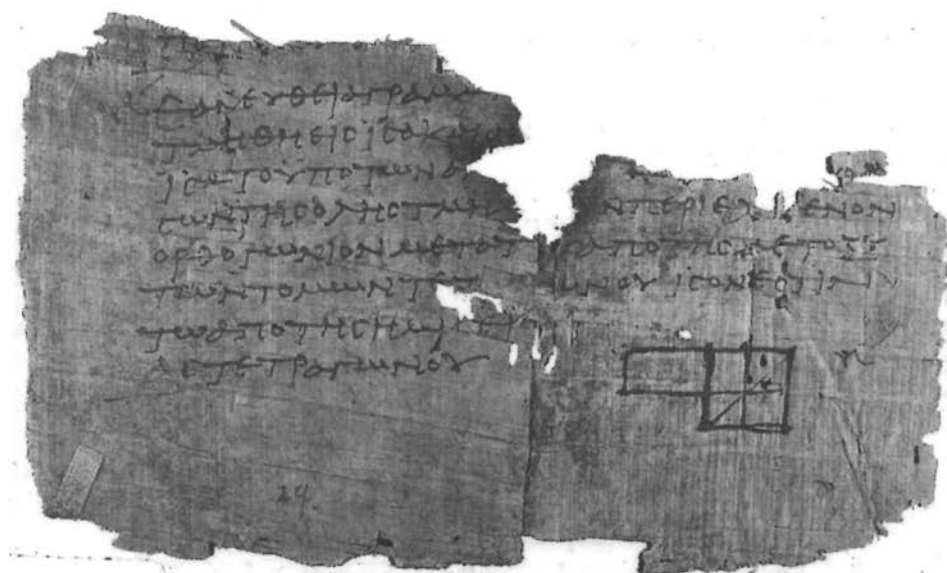 ΕΑΝΕΥΘΕΙΑΓΡΑΜ
ΤΜΗΘΗΕΙϹΙϹΑΚΑΙΑΝ
ΙϹΑΤΟΥΠΟΤΩΝΑ
ΤΩΝΤΗϹΟΛΗϹΤΜΗ ΝΠΕΡΙΕΧΟΜΕΝΟΝ
ΟΡΘΟΓΩΝΙΟΝΜΕΤΑΤ ΑΠΟΤΗϹΜΕΤΟΞΥ
ΤΩΝΤΟΜΩΝΤΕΤ ΩΝΟΥΙϹΟΝΕϹΤΙΝ
ΤΩΑΠΟΤΗϹΗΜΙϹΕΙ
ΑϹΤΕΤΡΑΓΩΝΟΥ
24